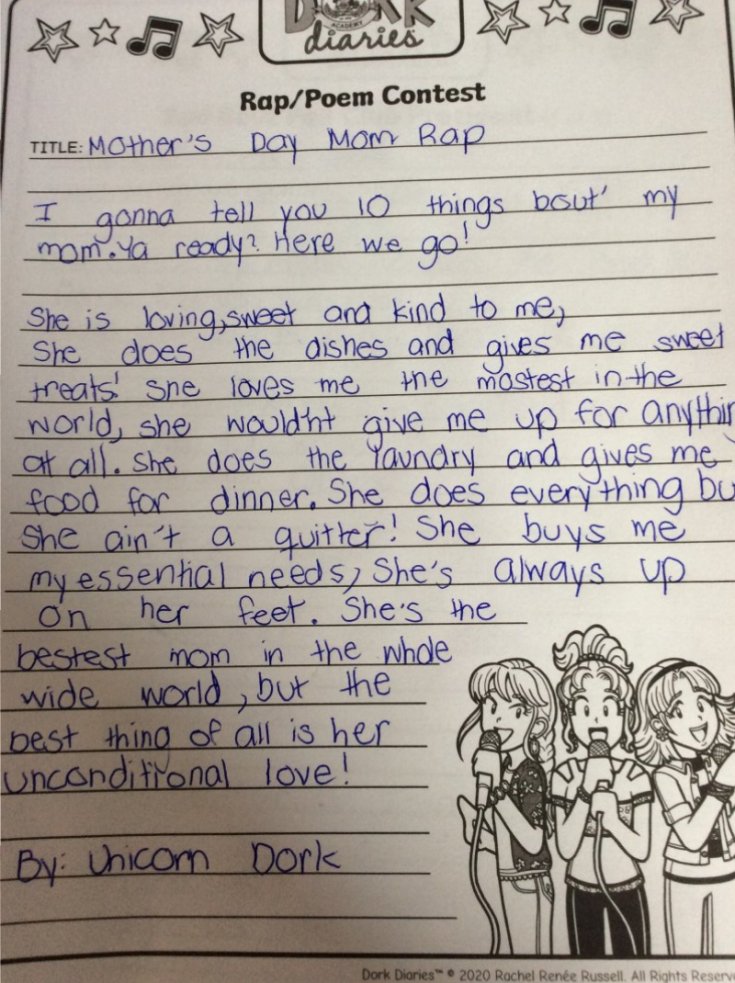 DORK
diaries
Rap/Poem Contest
TITLE: Mother's Day Mom Rap
I gonna tell you 10 things bout' my
mom. Ya ready? Here we go!
She is loving, sweet and kind to me,
She does the dishes and gives me sweet
treats! She loves me the mostest in the
world, she would'nt give me up for anythin
at all. She does the laundry and gives me
food for dinner. She does everything bu
She ain't a quitter! She buys me
my essential needs, She's always up
on her feet. She's the
bestest mom in the whole
wide world, but the
best thing of all is her
unconditional love!
By: Unicorn Dork
Dork Diaries™ © 2020 Rachel Renée Russell. All Rights Reserve